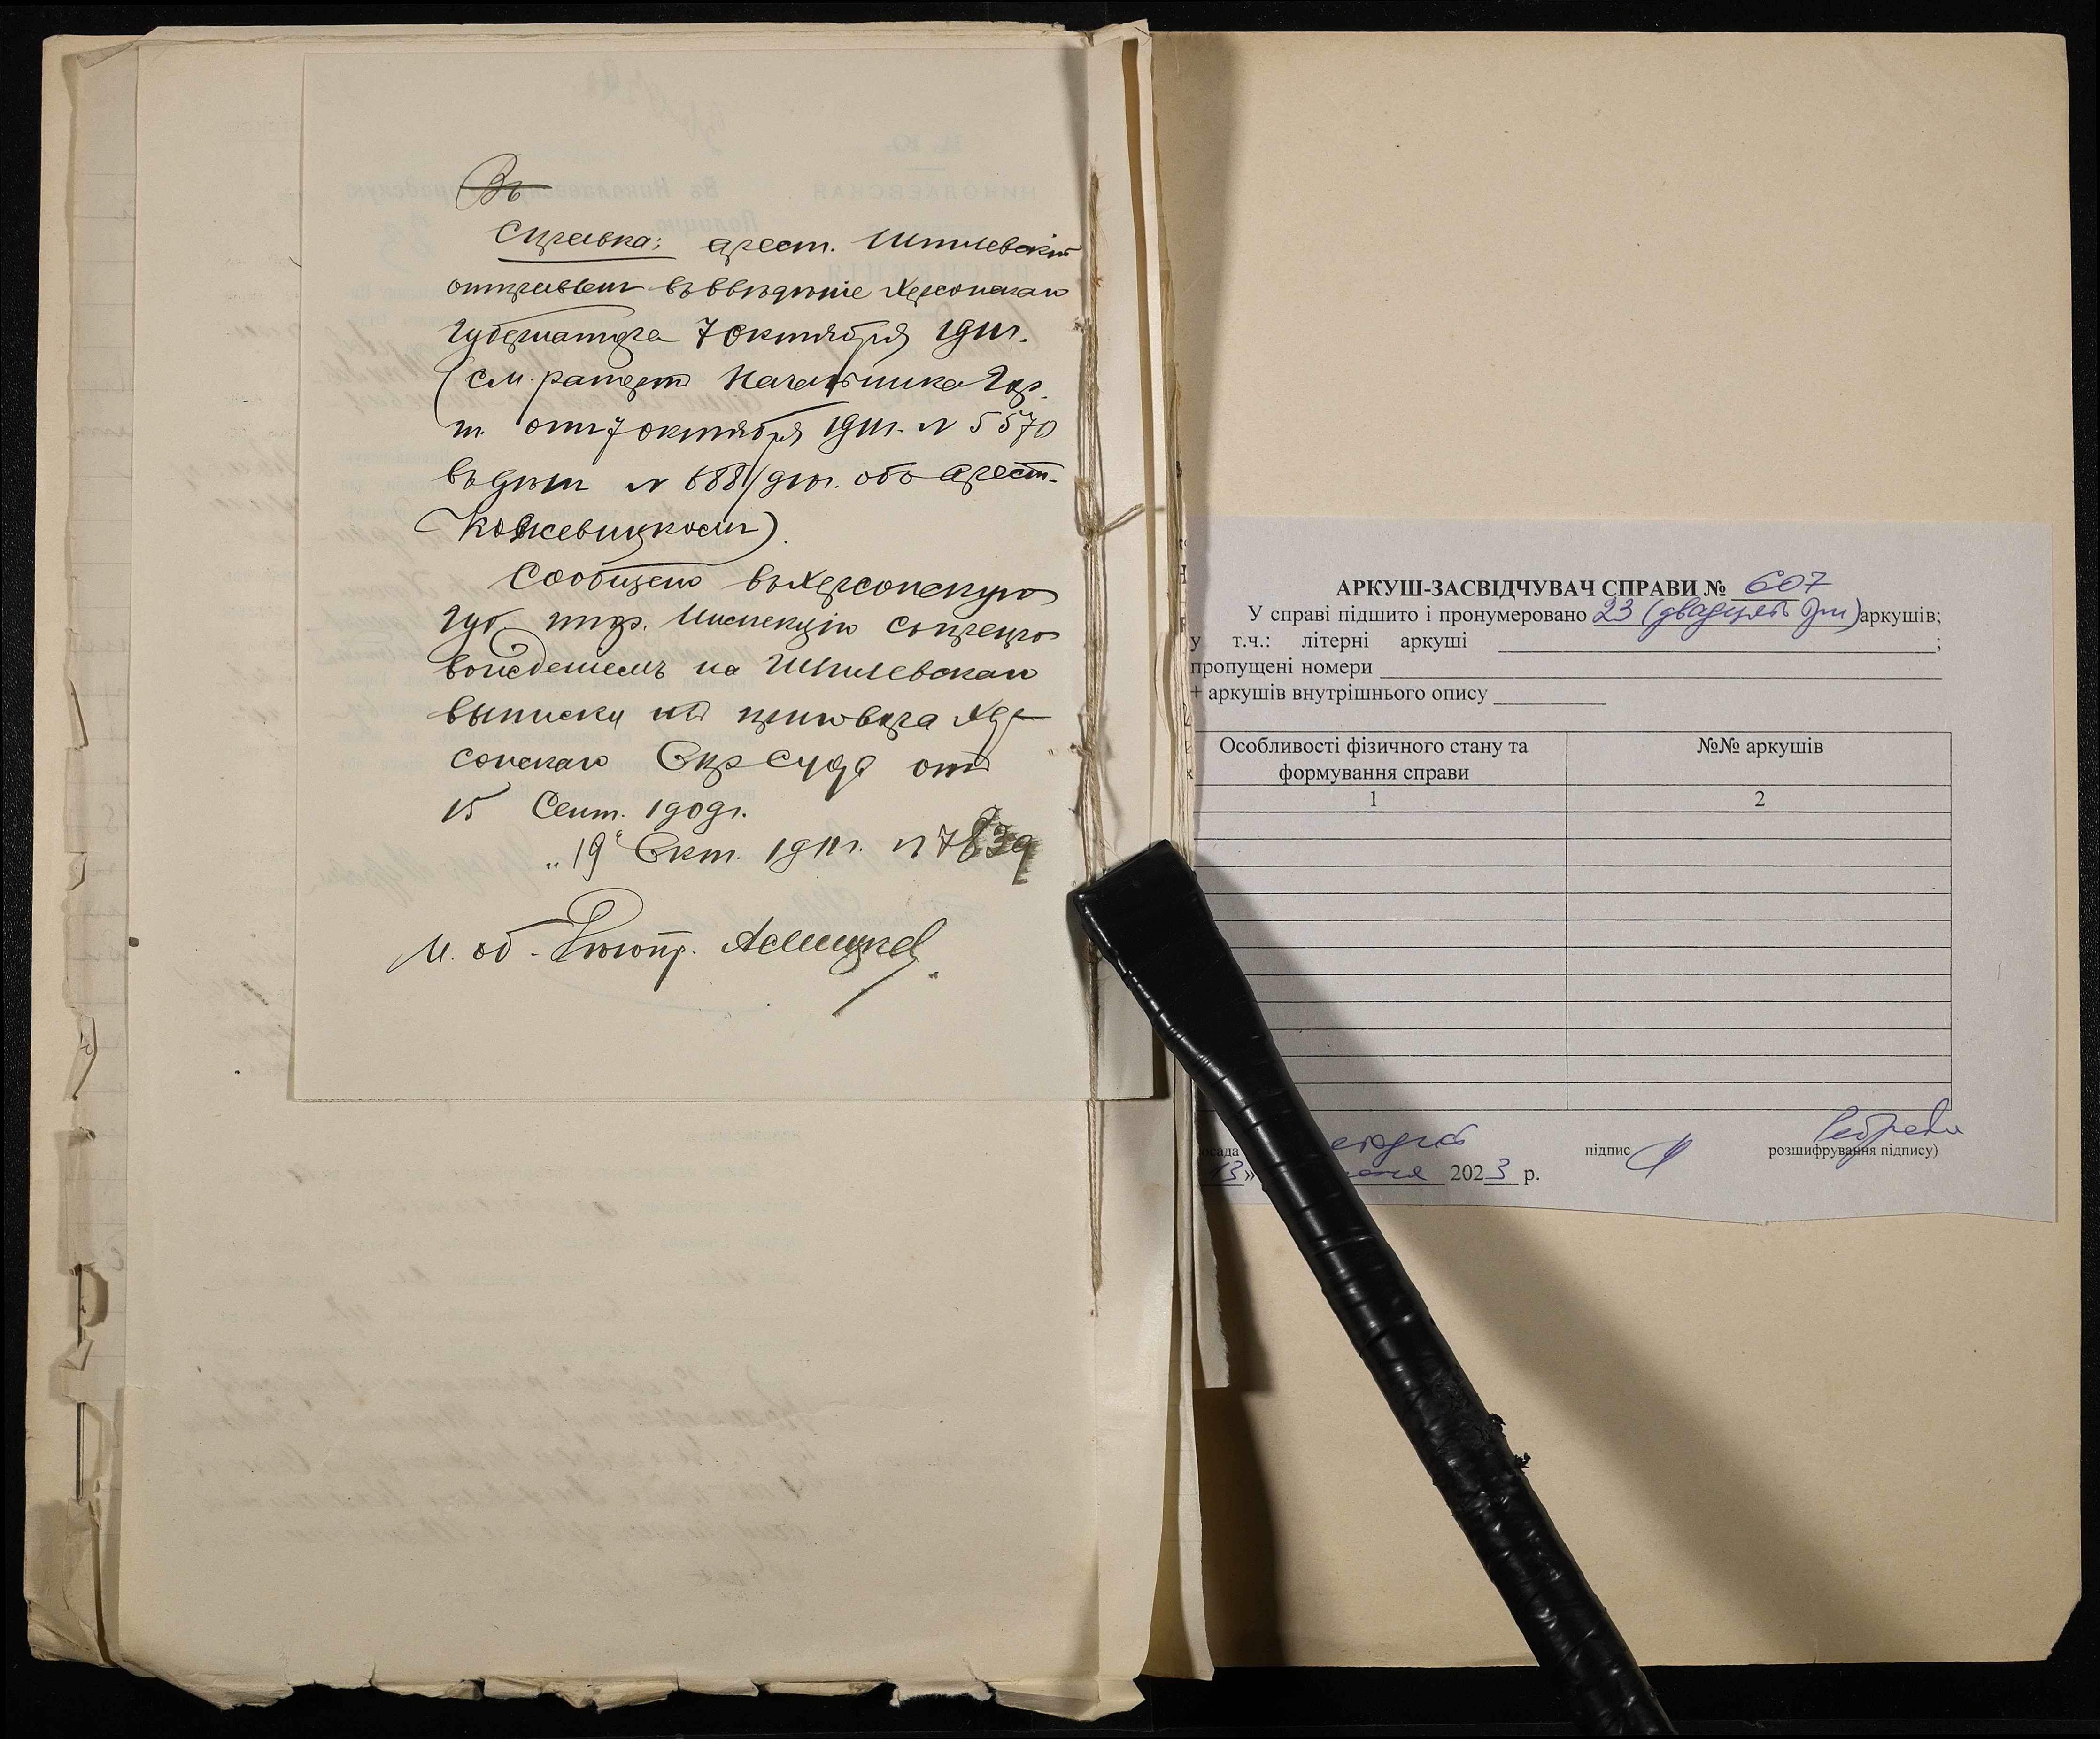 Въ
Справка: арест. Шпилевскій
отправленъ въ вѣдѣніе Херсонскаго
Губернатора 7 октября 1911г.
(см. рапортъ Начальника Гор.
т. отъ 7 октября 1911г. № 5570
въ дѣлѣ № 688/910г. объ арест.
Кожевицкомъ).
Сообщено въ Херсонскую
Губ. тюр. Инспекцію съ препро
вожденіемъ на Шпилевскаго
выписки изъ приговора Хер
сонскаго Окр Суда отъ
15 Сент. 1909г.
„19" Окт. 1911г. № 7839
И. об. Дѣлопр.
АРКУШ-ЗАСВІДЧУВАЧ СПРАВИ № 607
У справі підшито і пронумеровано 23 (двадцять три) аркушів;
у т.ч.: літерні аркуші ;
пропущені номери
+ аркушів внутрішнього опису
Особливості фізичного стану та формування справи
№№ аркушів
1 2
підпис розшифрування підпису)
13» 2023 р.